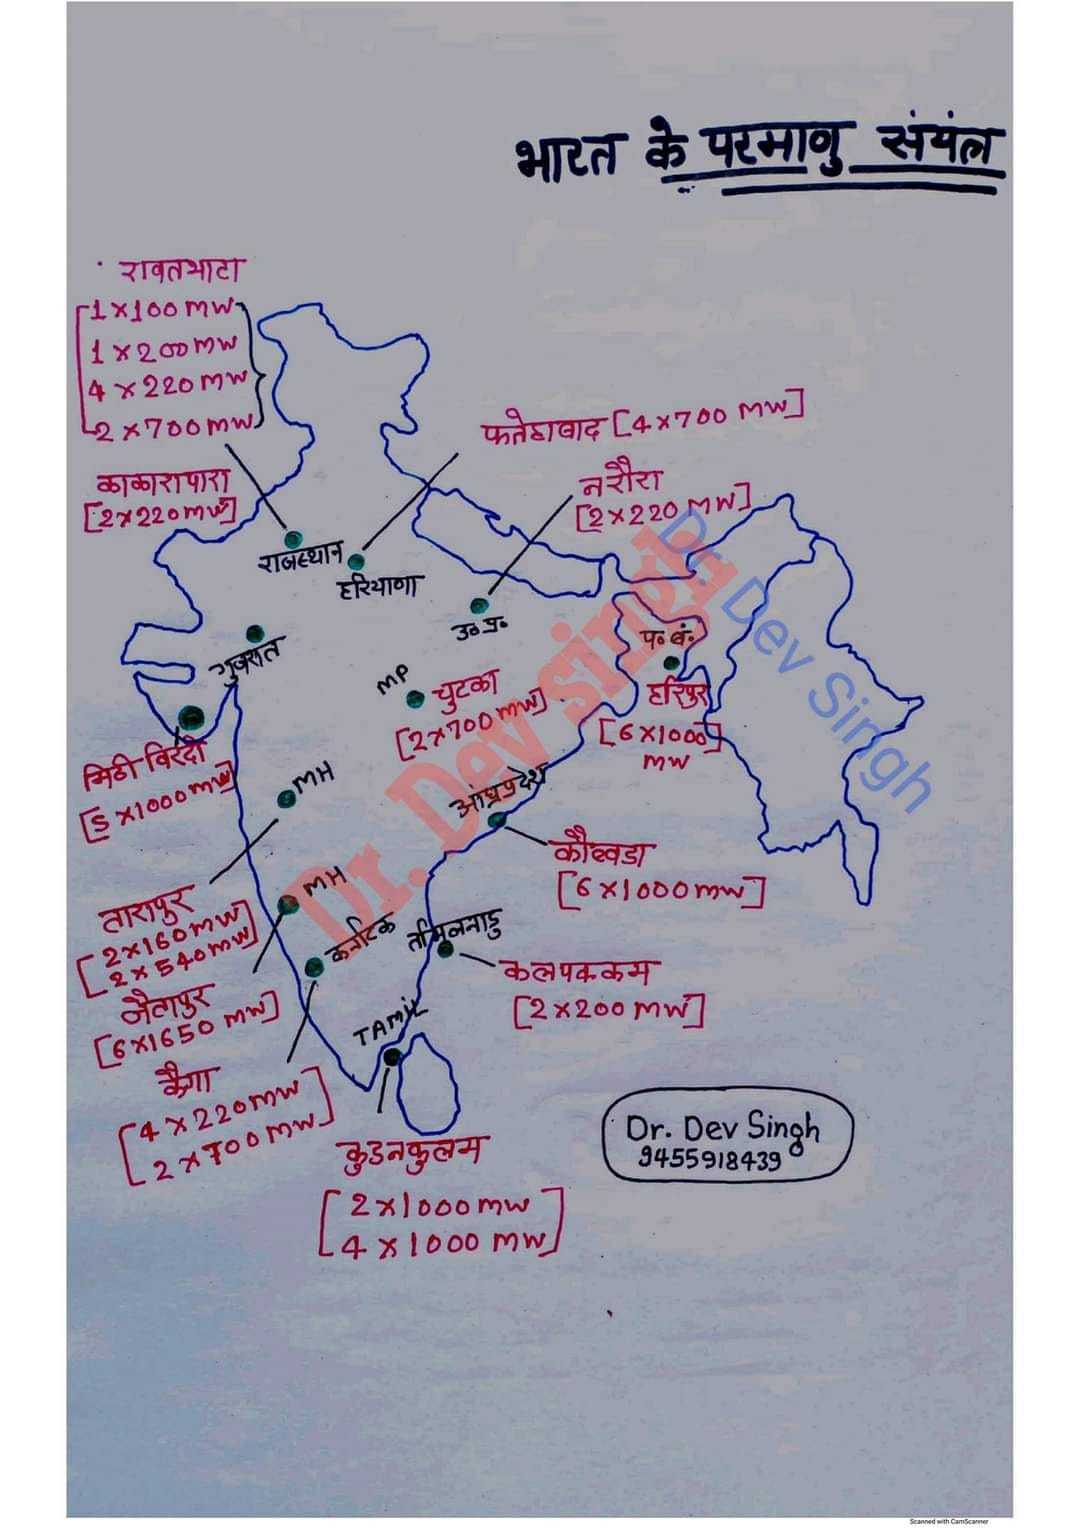 भारत के परमाणु संयंत्र
रावतभाटा
[1×100 MW
1×200 MW
4×220 MW
2×700 MW]
काकारापारा
[2×220MW]
फतेहाबाद [4×700 MW]
नरौरा
[2×220 MW]
राजस्थान
हरियाणा
उ० प्र०
गुजरात
प० बं०
हरिपुर
[6×1000]
MW
MP
चुटका
[2×700 MW]
मिठी विरदी
[5×1000MW]
MH
आंध्रप्रदेश
कौव्वडा
[6×1000MW]
तारापुर
[2×160MW
2×540MW]
MH
जैतापुर
[6×1650 MW]
कर्नाटक
तमिलनाडु
कलपक्कम
[2×200 MW]
कैगा
[4×220MW
2×700MW]
TAMIL
कुडनकुलम
[2×1000MW
4×1000 MW]
Dr. Dev Singh
9455918439
Dr. Dev singh
Dr. Dev Singh
Scanned with CamScanner